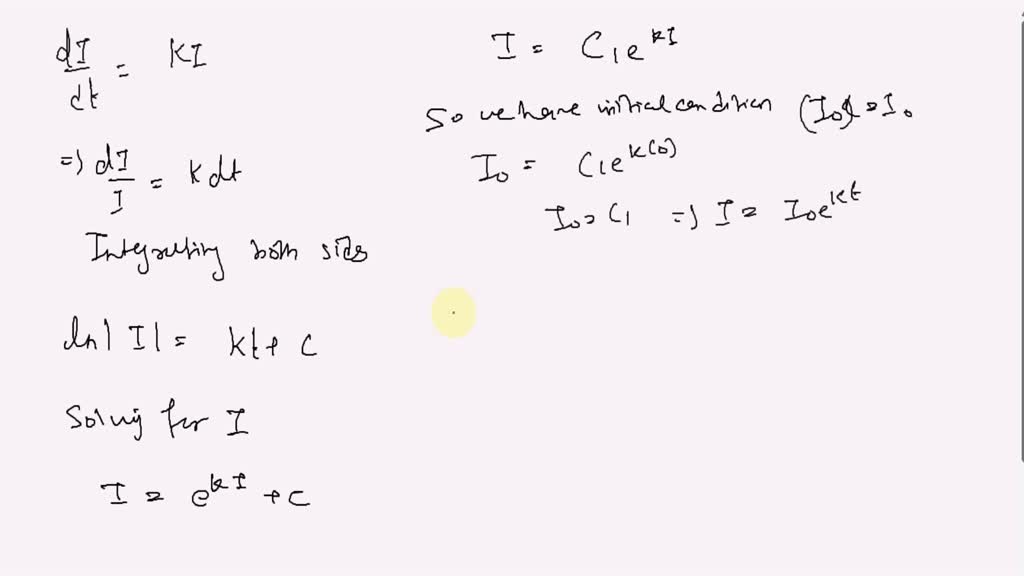 dI/dt = KI
=> dI/I = k dt
Integrating both sides
ln|I| = kt + c
Solving for I
I = e^{kI} + c
I = C₁e^{kI}
So we have initial condition = I₀
I₀ = C₁e^{k(0)}
I₀ = C₁ => I = I₀e^{kt}